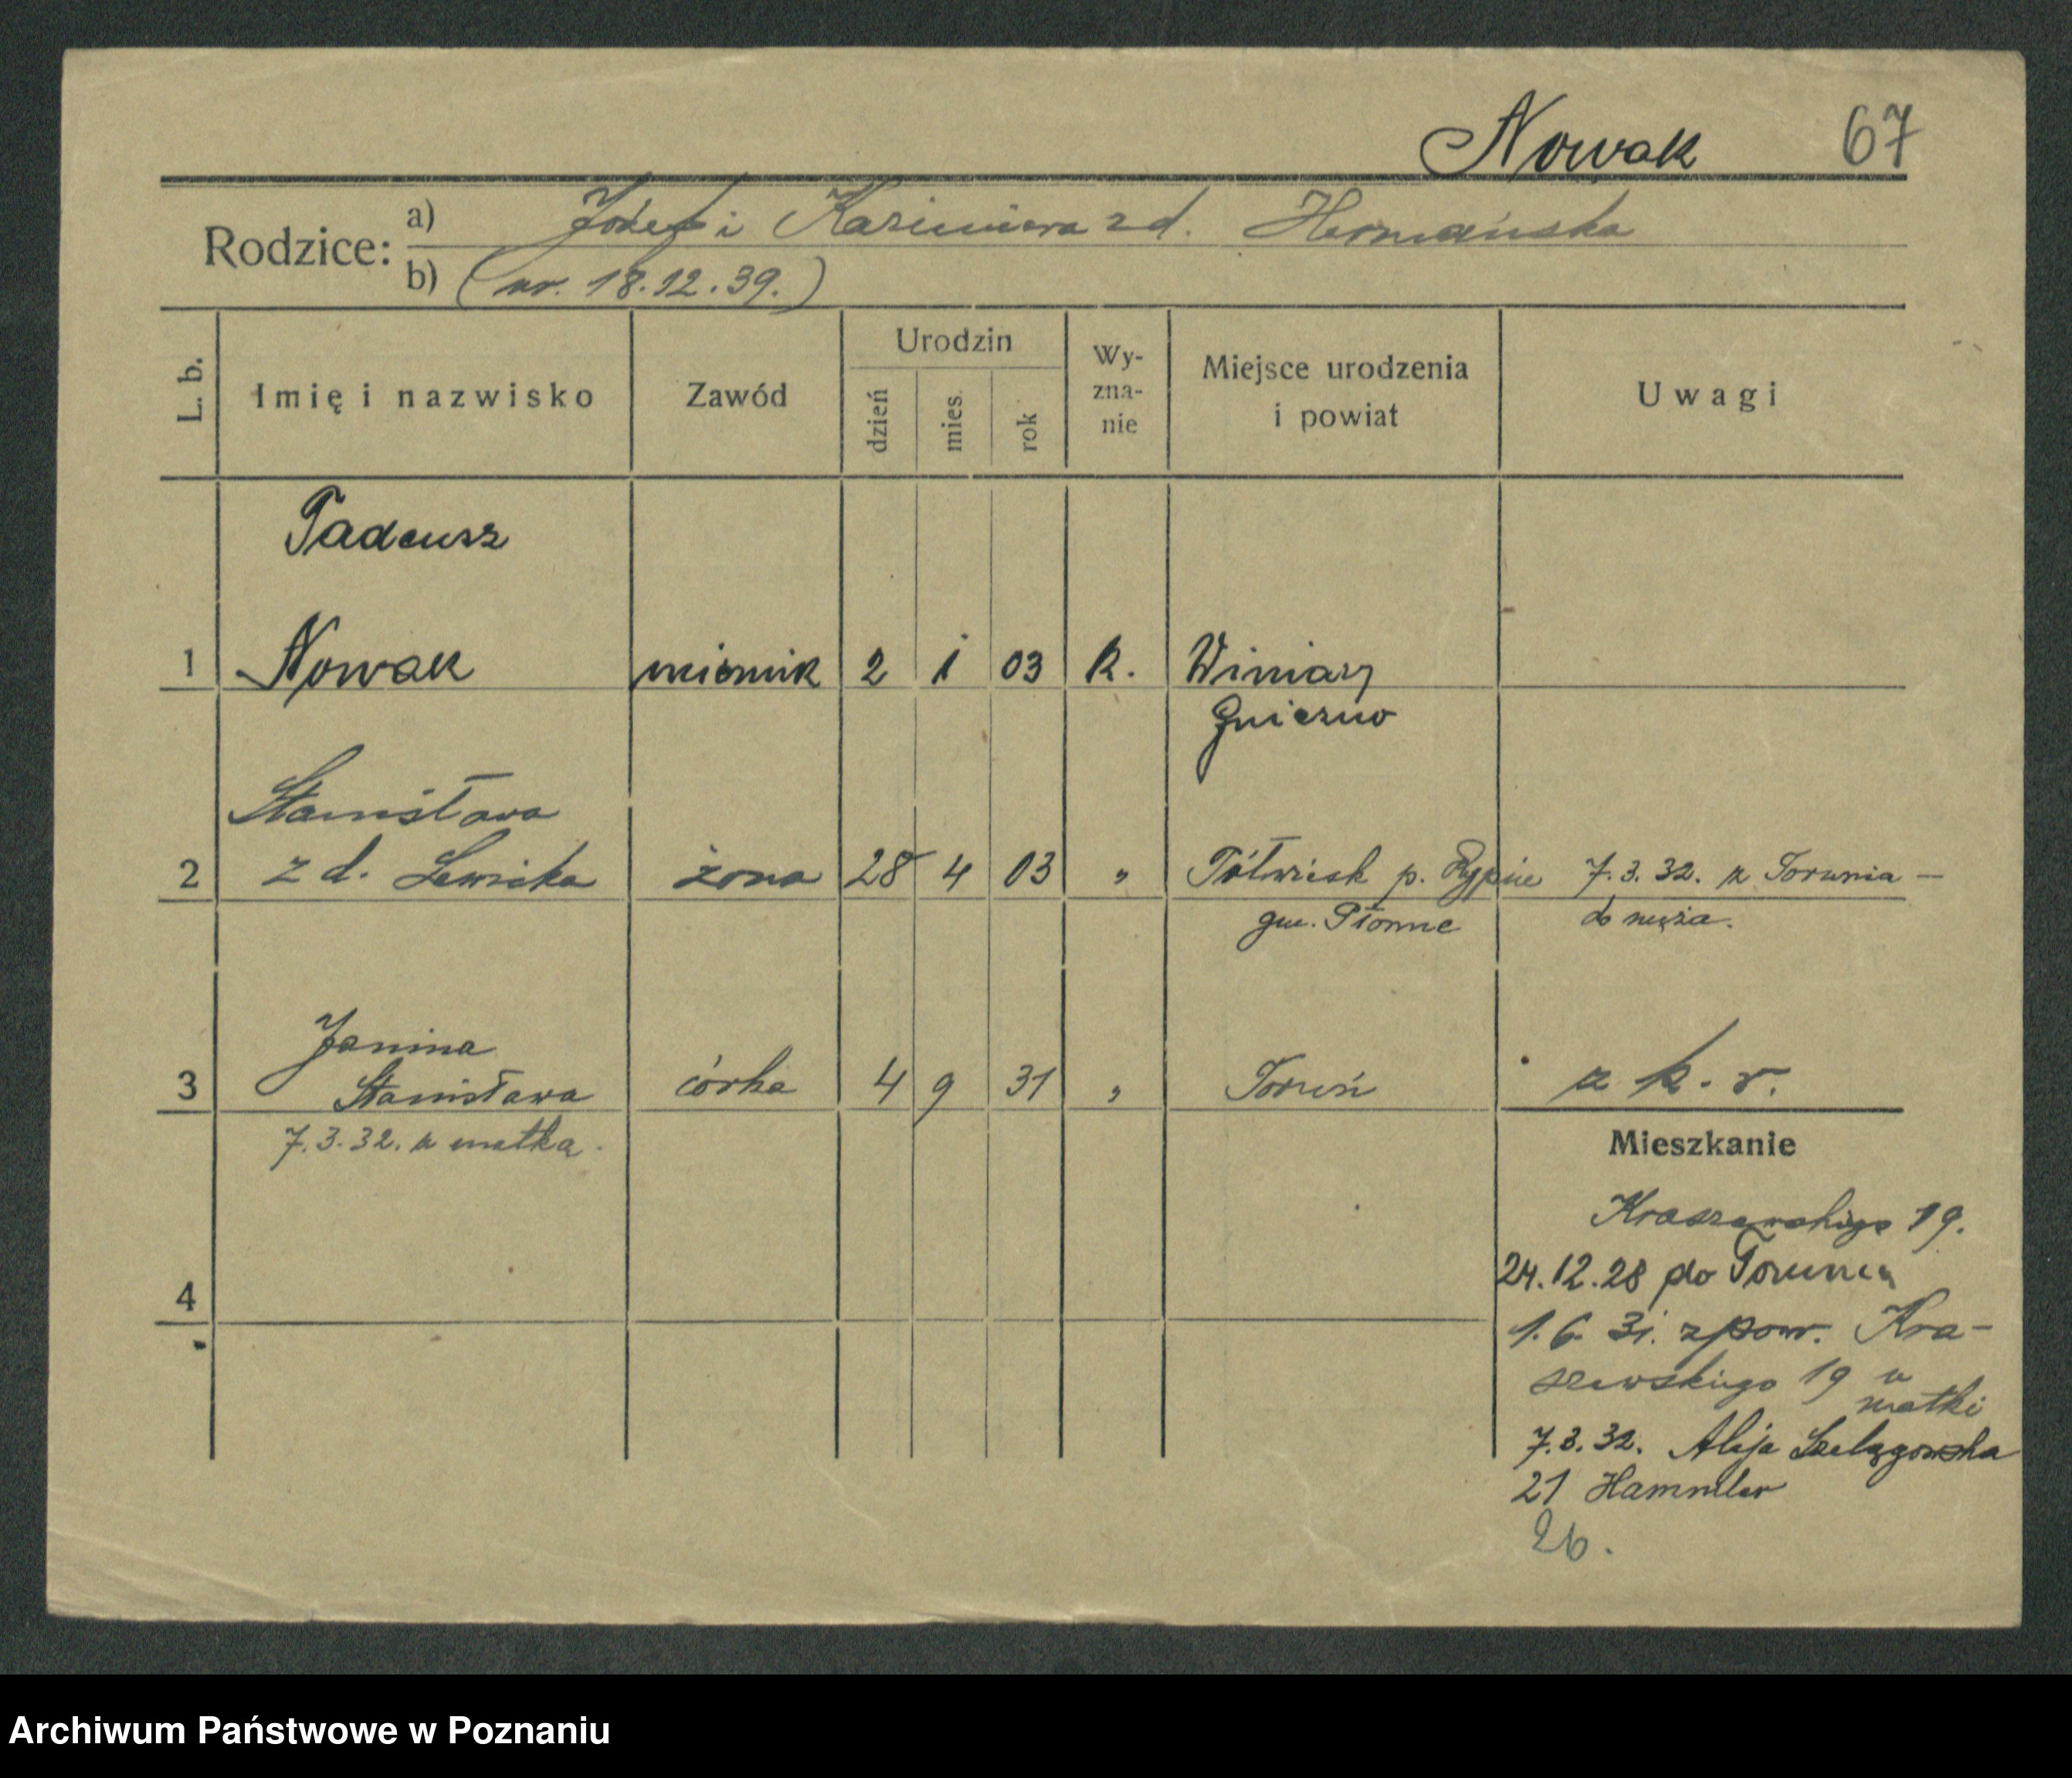 Nowak 67
Rodzice: a) Józef i Kazimiera z d. Hermańska
b) (ur. 18.12.39.)
L. b. Imię i nazwisko Zawód Urodzin dzień mies. rok Wy-zna-nie Miejsce urodzenia i powiat Uwagi
Tadeusz
1 Nowak miernik 2 1 03 k. Winiary
Gniezno
Stanisława
2 z d. Lewicka żona 28 4 03 " Półwiesk p. Rypin 7.3.32. z Torunia –
gm. Płonne do męża.
Janina
3 Stanisława córka 4 9 31 " Toruń z k. r.
7.3.32. z matką.
Mieszkanie
Kraszewskiego 19.
24.12.28 do Torunia
4
1.6.31. z pow. Kra-
szewskiego 19 u
matki
7.3.32. Aleja Szelągowska
21 Hammler
26.
Archiwum Państwowe w Poznaniu